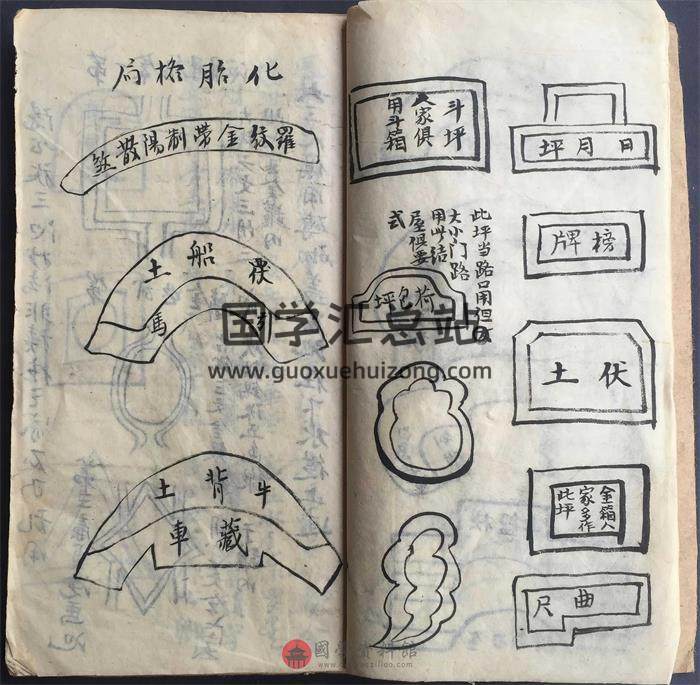 日月坪
榜牌
伏土
金箱人
家多作
此坪
曲尺
斗坪
人家俱
用斗箱
此坪当路口用但
大小门路
用此结
屋俱要
式
荷包坪
化胎檐局
羅紋金帶制陽散煞
伏船土
引馬
牛背土
藏車
国学汇总站
www.guoxuehuizong.com
國學資料館